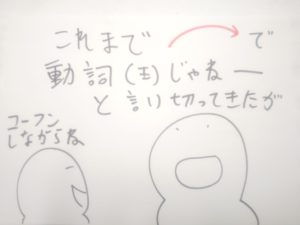 これまで で
動詞(主)じゃねー
と言い切ってきたが
コーフン
しながらね